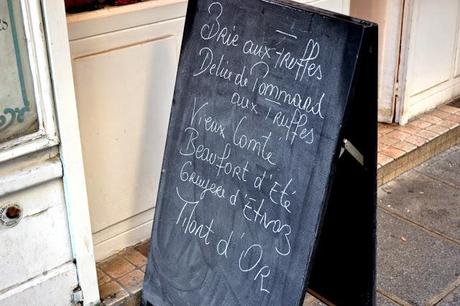 Brie aux truffes
Delice de Pommard
aux truffes
Vieux Comté
Beaufort d'Eté
Gruyère d'Etivaz
Mont d'Or